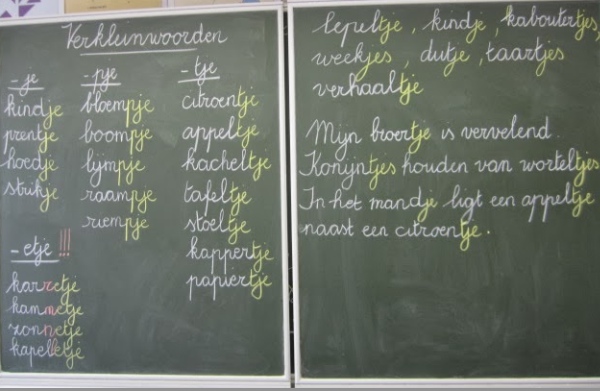 Verkleinwoorden
-je
kindje
prentje
hoedje
strikje
-pje
bloempje
boompje
lijmpje
raampje
riempje
-tje
citroentje
appeltje
kacheltje
tafeltje
stoeltje
kappertje
papiertje
-etje !!!
karretje
kammetje
zonnetje
kapelletje
lepeltje, kindje, kaboutertjes,
weekjes, dutje, taartjes
verhaaltje
Mijn broertje is vervelend.
Konijntjes houden van worteltjes
In het mandje ligt een appeltje
naast een citroentje.